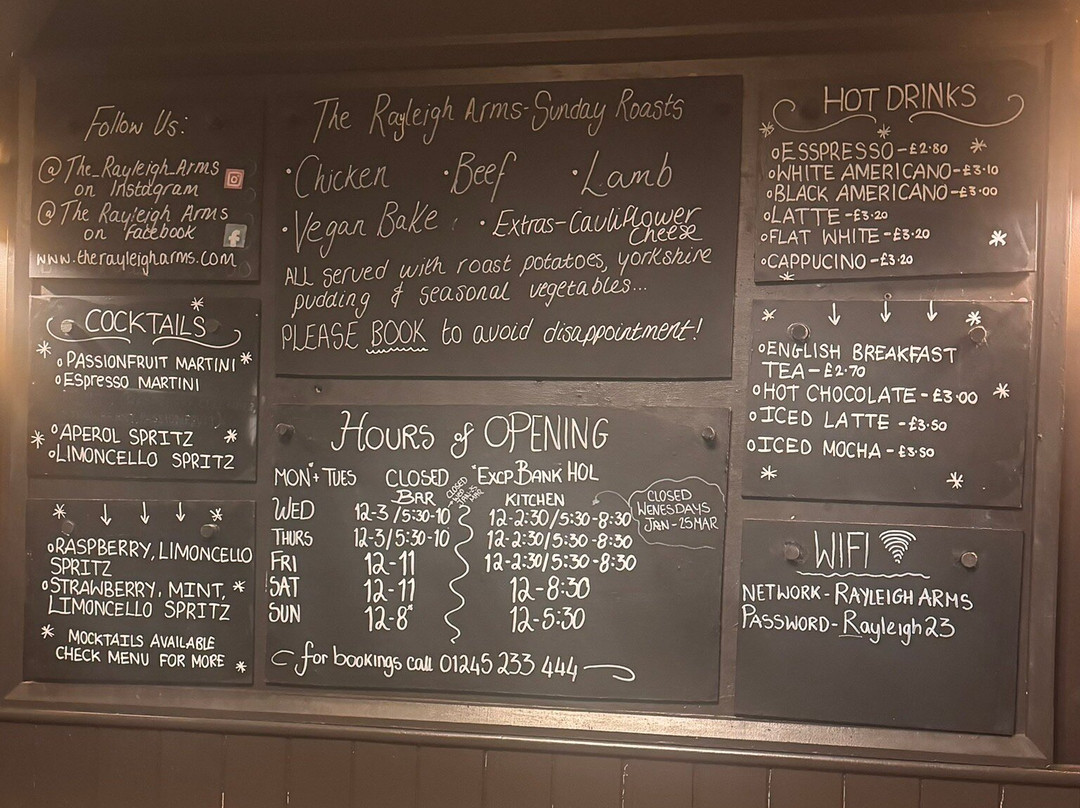 Follow Us:
@The_Rayleigh_Arms
on Instagram
@The Rayleigh Arms
on Facebook
www.therayleigharms.com
COCKTAILS
PASSIONFRUIT MARTINI
Espresso MARTINI
APEROL SPRITZ
LIMONCELLO SPRITZ
RASPBERRY, LIMONCELLO
SPRITZ
STRAWBERRY, MINT,
LIMONCELLO SPRITZ
MOCKTAILS AVAILABLE
CHECK MENU FOR MORE
The Rayleigh Arms-Sunday Roasts
•Chicken •Beef •Lamb
•Vegan Bake •Extras-Cauliflower
Cheese
ALL served with roast potatoes, yorkshire
pudding & seasonal vegetables...
PLEASE BOOK to avoid disappointment!
HOURS of OPENING
MON + TUES CLOSED *EXCP BANK HOL
BAR KITCHEN
WED 12-3/5:30-10 12-2:30/5:30-8:30
THURS 12-3/5:30-10 12-2:30/5:30-8:30
FRI 12-11 12-2:30/5:30-8:30
SAT 12-11 12-8:30
SUN 12-8* 12-5:30
CLOSED
WENESDAYS
JAN-25MAR
for bookings call 01245 233 444
HOT DRINKS
ESSPRESSO-£2.80
WHITE AMERICANO-£3.10
BLACK AMERICANO-£3.00
LATTE-£3.20
FLAT WHITE-£3.20
CAPPUCINO-£3.20
ENGLISH BREAKFAST
TEA-£2.70
HOT CHOCOLATE-£3.00
ICED LATTE-£3.50
ICED MOCHA-£3.50
WIFI
NETWORK-RAYLEIGH ARMS
PASSWORD-Rayleigh23